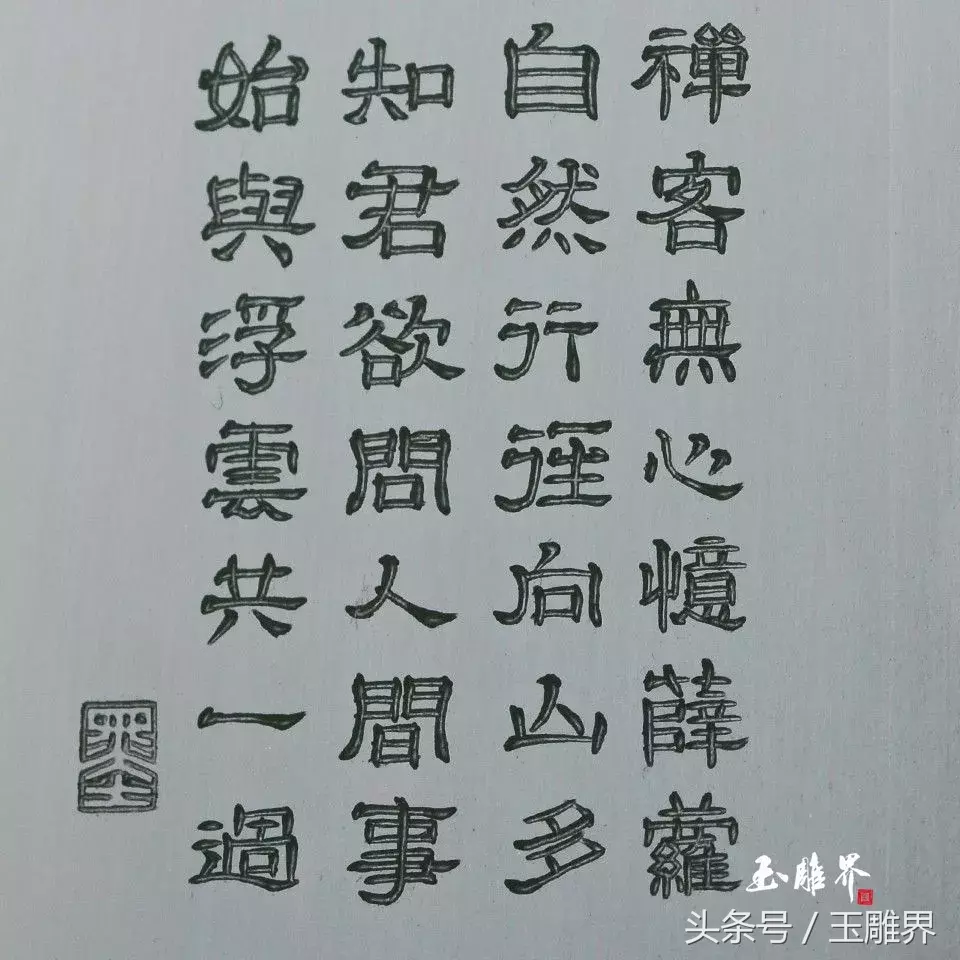 禪客無心憶薜蘿
自然行徑向山多
知君欲問人間事
始與浮雲共一過
玉雕界
头条号 / 玉雕界